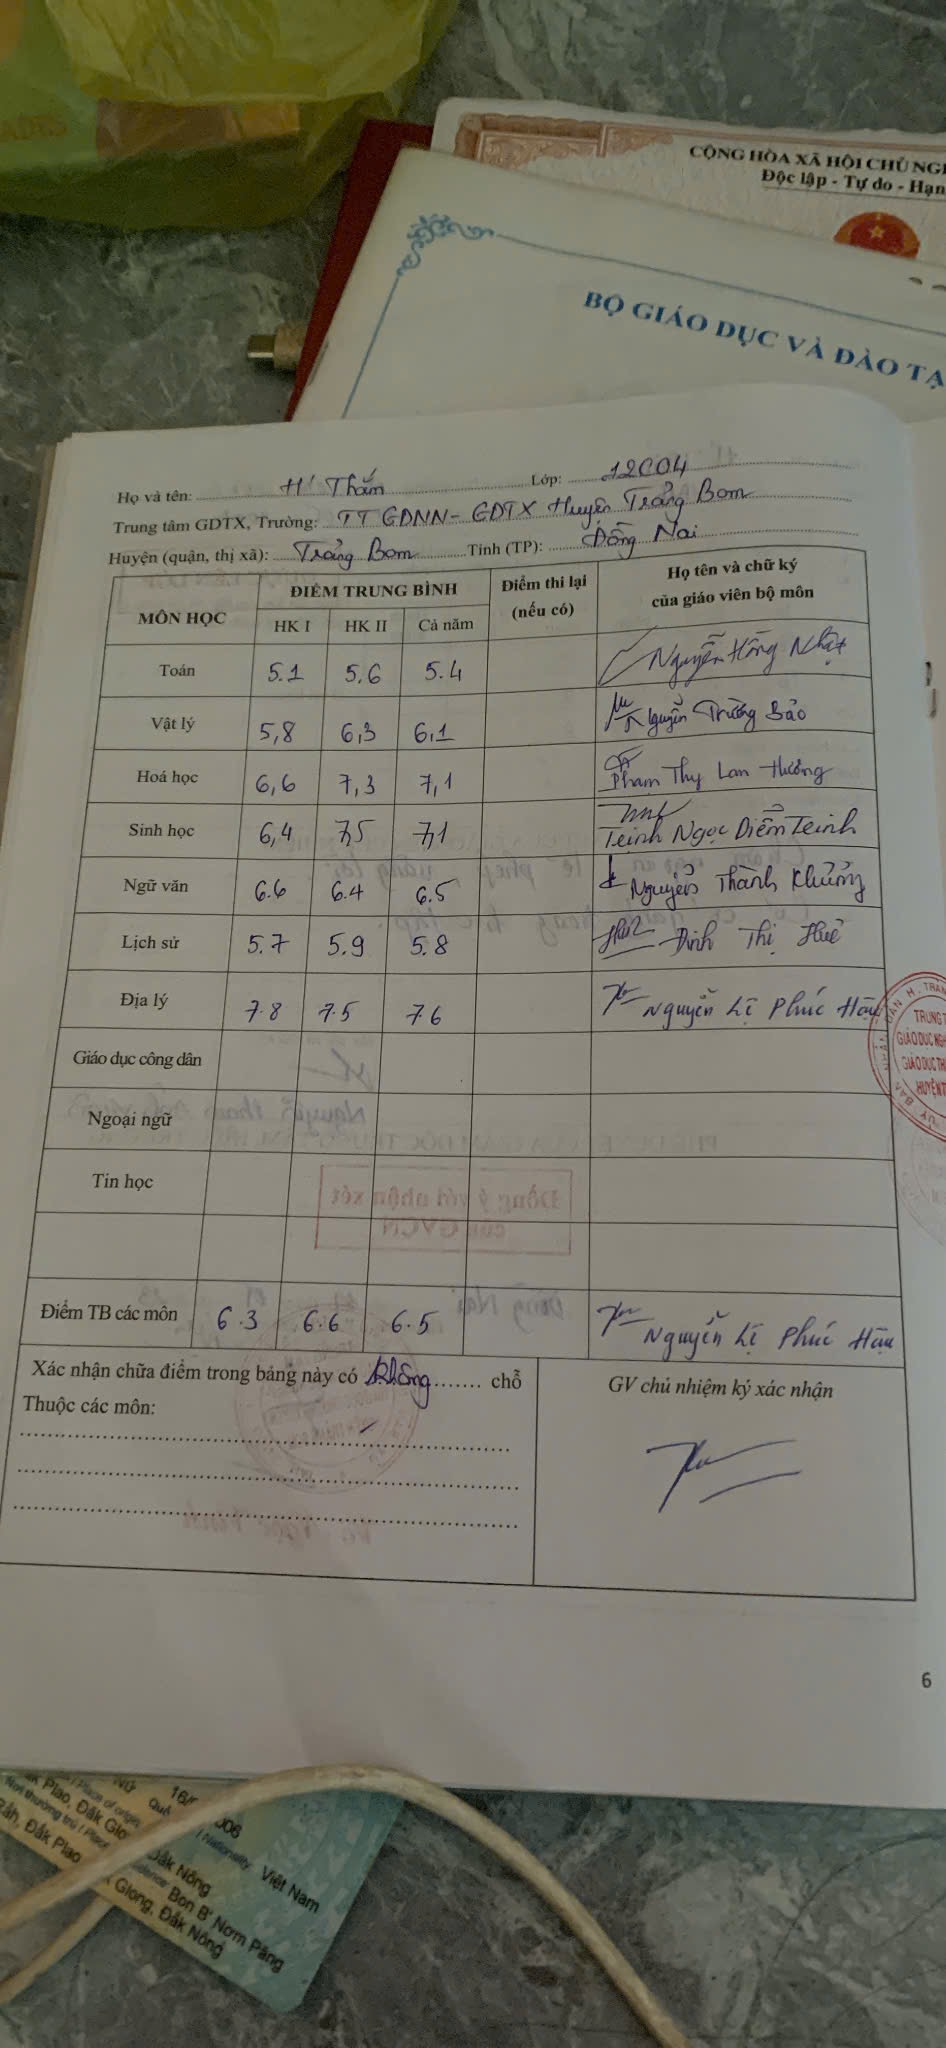 CỘNG HÒA XÃ HỘI CHỦ NGH
Độc lập - Tự do - Hạn
BỘ GIÁO DỤC VÀ ĐÀO TẠ
Họ và tên: H' Thắm Lớp: 12C04
Trung tâm GDTX, Trường: TT GDNN- GDTX Huyện Trảng Bom
Huyện (quận, thị xã): Trảng Bom Tỉnh (TP): Đồng Nai
MÔN HỌC ĐIỂM TRUNG BÌNH Điểm thi lại (nếu có) Họ tên và chữ ký của giáo viên bộ môn
HK I HK II Cả năm
Toán 5.1 5.6 5.4 Nguyễn Hồng Nhật
Vật lý 5,8 6,3 6,1 Nguyễn Trường Bảo
Hoá học 6,6 7,3 7,1 Phạm Thy Lan Hương
Sinh học 6,4 7,5 7,1 Trịnh Ngọc Diễm Trinh
Ngữ văn 6.6 6.4 6.5 Nguyễn Thành Khưởng
Lịch sử 5.7 5.9 5.8 Đinh Thị Huê
Địa lý 7.8 7.5 7.6 Nguyễn Lê Phúc Hậu
Giáo dục công dân
Ngoại ngữ
Tin học
Điểm TB các môn 6.3 6.6 6.5 Nguyễn Lê Phúc Hậu
Xác nhận chữa điểm trong bảng này có không chỗ
Thuộc các môn:
GV chủ nhiệm ký xác nhận
TRUNG T
GIÁO DỤC NGH
GIÁO DỤC TH
HUYỆN T
6
NỮ
Việt Nam
Đắk Nông
Bon B' Nơm Păng
Glong, Đắk Nông